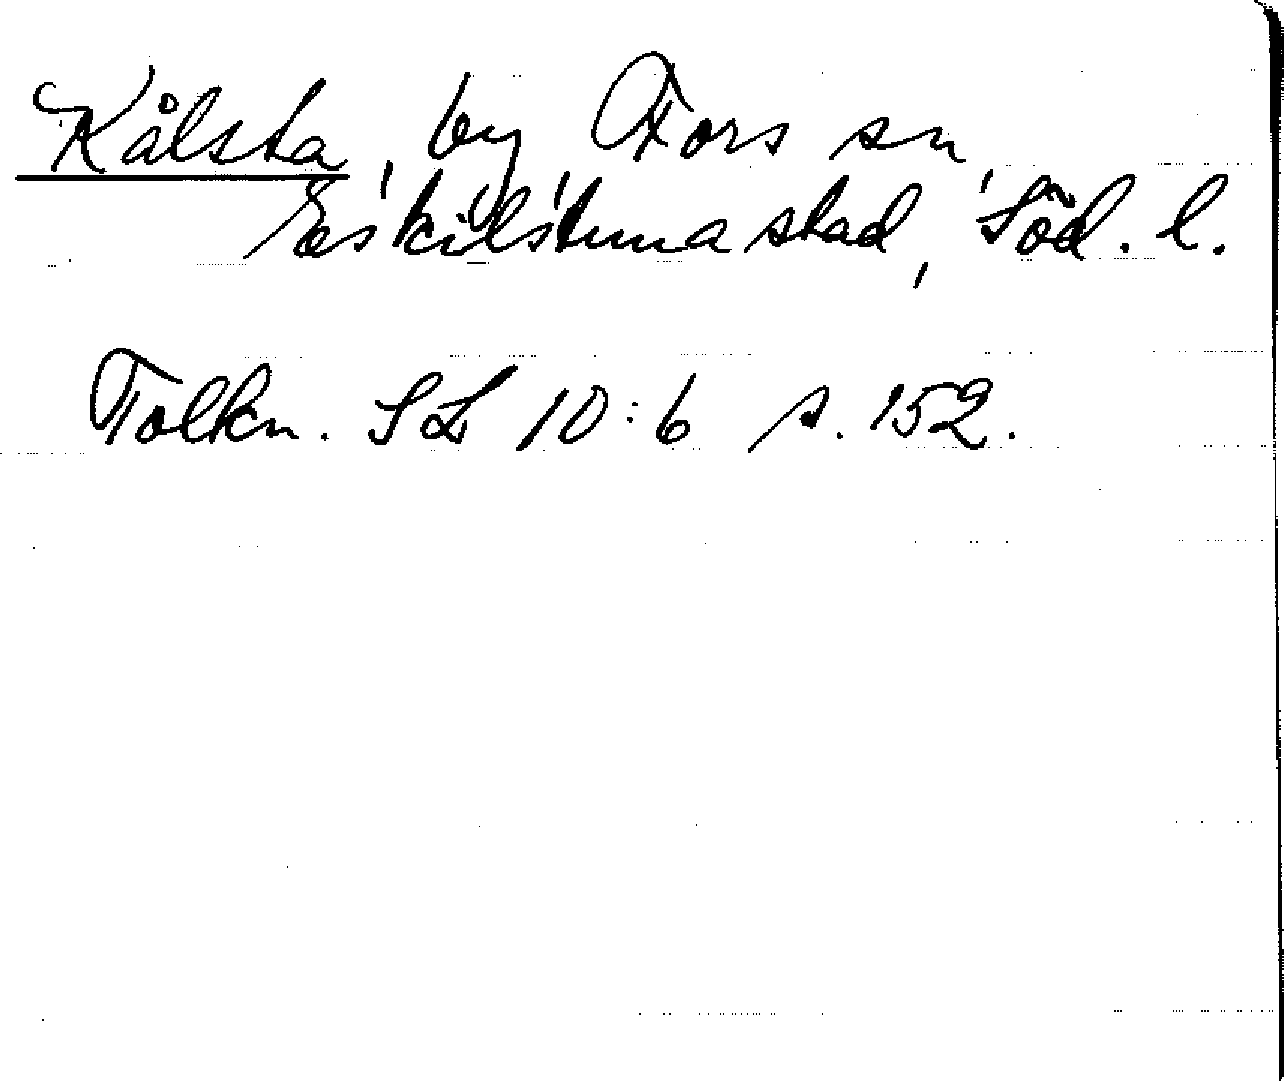 Kålsta, by Fors sn,
Eskilstuna stad, Söd. l.
Tolkn. SL 10:6 s. 152.